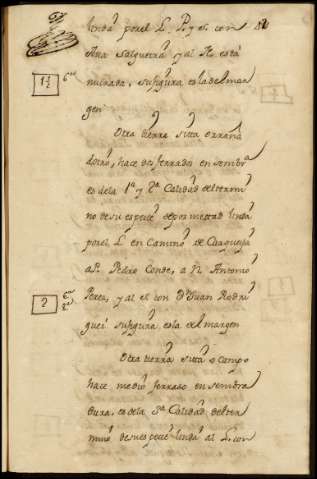 linda por el L. P. y el con
Ana Salgueira y al N. está
murada, su figura es la del mar
gen
1½
Otra tierra sitta
hace dos ferrados en sembrª
es de la 1ª y 2ª Calidad del termi
no de su especie de por mettad linda
por el L en Camino de
a P. Pedro Conde, a N Antonio
Perez, y al el con Dⁿ Juan Rodri
guez su figura esta el margen
2
Otra tierra sitta campo
hace medio ferrado en sembra
dura, es de la 3ª Calidad del ter
mino de su especie linda al L. con